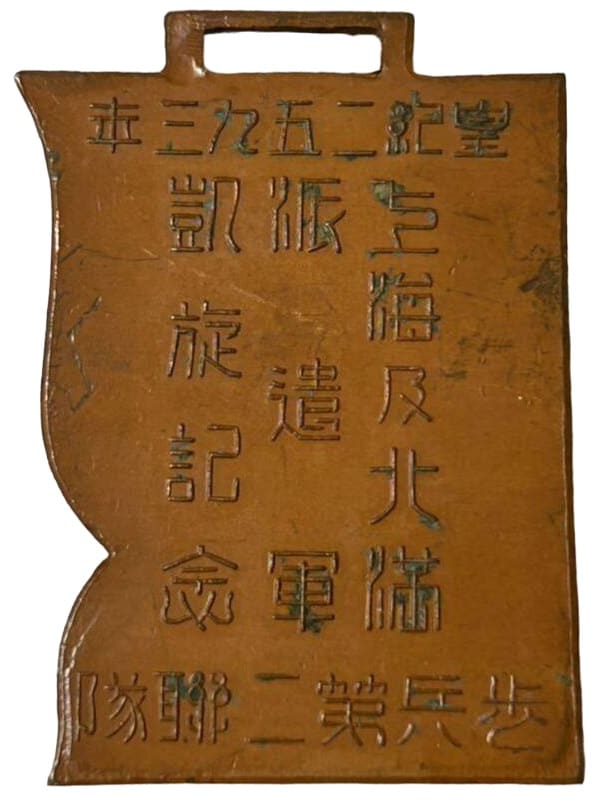 皇紀二五九三年
上海及北満
派遣軍
凱旋記念
歩兵第二聯隊